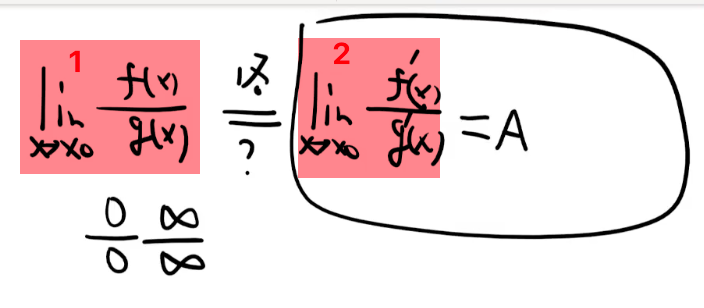 1 2
lim x→x0 f(x)/g(x) = lim x→x0 f′(x)/g′(x) = A
?
0/0 ∞/∞